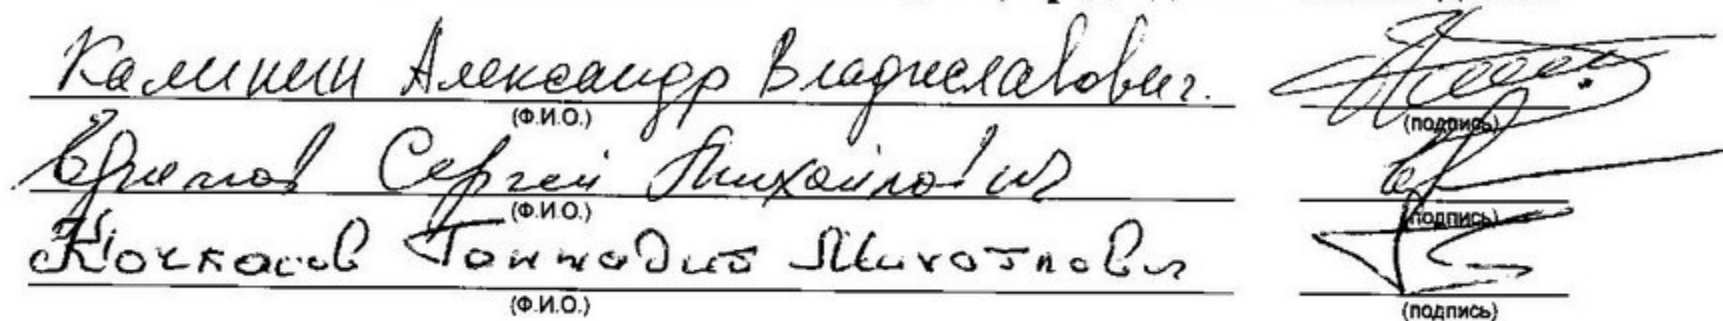 Калинин Александр Владиславович.
(Ф.И.О.) (подпись)
Сергей Михайлович
(Ф.И.О.) (подпись)
Геннадий Михайлович
(Ф.И.О.) (подпись)